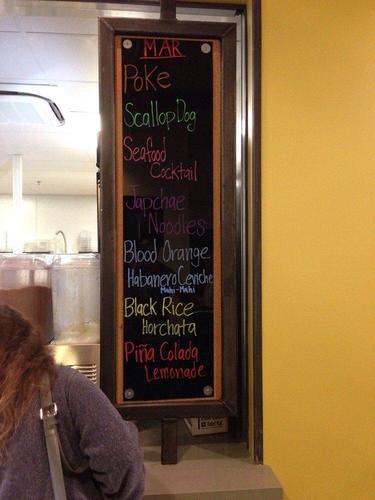 MAR
Poke
Scallop Dog
Seafood
Cocktail
Japchae
Noodles
Blood Orange
Habanero Ceviche
Mahi-Mahi
Black Rice
Horchata
Piña Colada
Lemonade